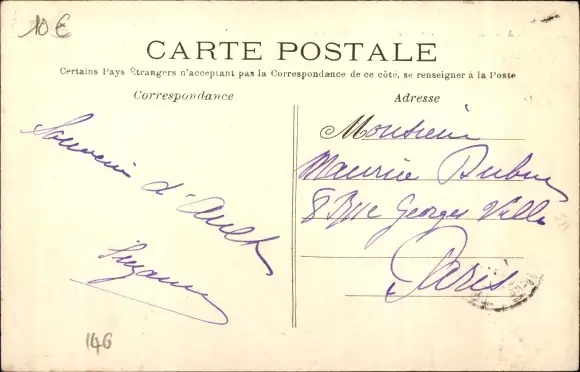 10€
CARTE POSTALE
Certains Pays Étrangers n'acceptant pas la Correspondance de ce côté, se renseigner à la Poste
Correspondance
Adresse
Souvenir d'Ault
Suzanne
Monsieur
Maurice
8 Rue Georges Ville
Paris
146